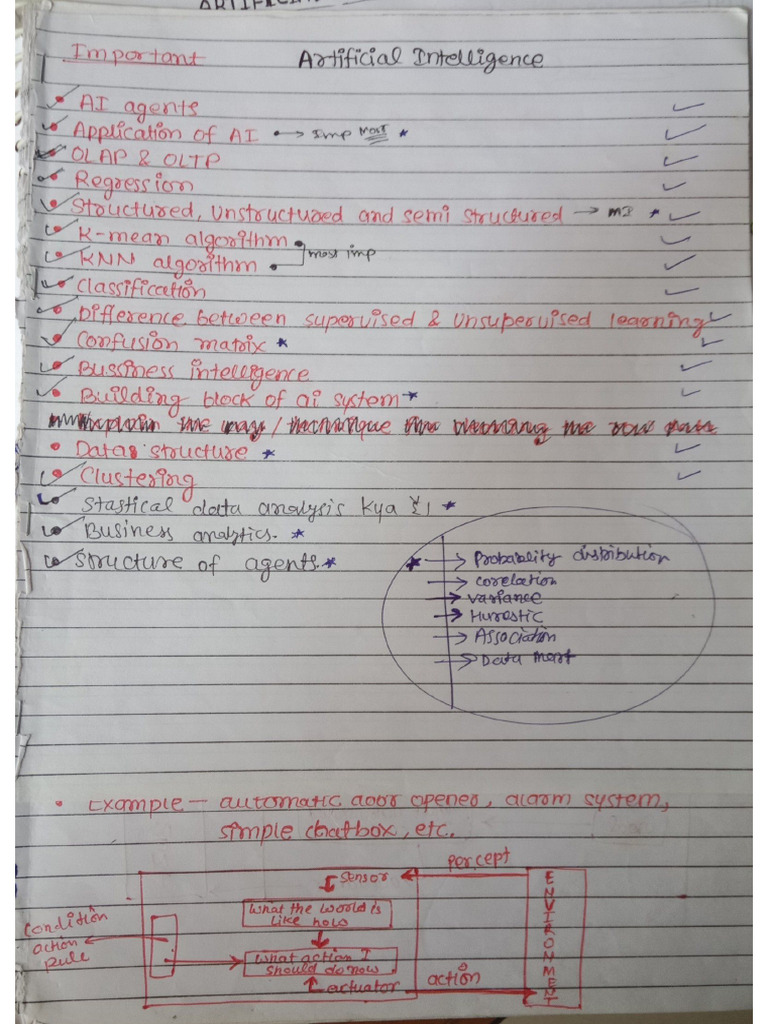 Important Artificial Intelligence
• AI agents
• Application of AI •→ Imp Most *
• OLAP & OLTP
• Regression
• Structured, Unstructured and semi structured → MI *
• K-mean algorithm
most imp
• KNN algorithm
• Classification
• Difference between supervised & Unsupervised learning
• Confusion matrix *
• Bussiness intelligence
• Building block of ai system *
• Data structure *
• Clustering
• Stastical data analysis Kya है। *
• Business analytics. *
• Structure of agents. *
* → Probability distribution
→ corelation
→ variance
→ Hurestic
→ Association
→ Data mart
• Example — automatic door opener, alarm system,
simple chatbox, etc.
percept
sensor
ENVIRONMENT
What the world is
like now
condition
action
rule
What action I
should do now
actuator
action